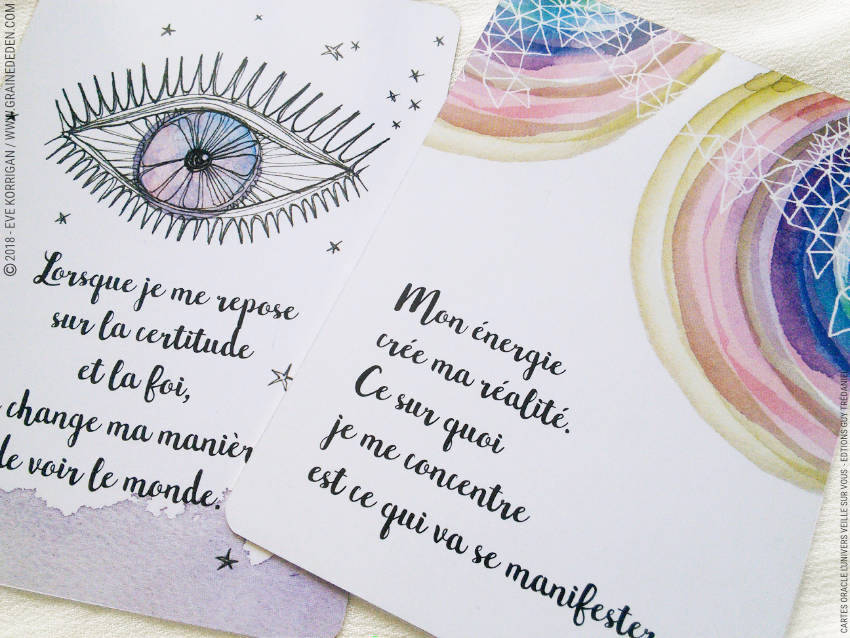 Lorsque je me repose
sur la certitude
et la foi,
change ma manièr
de voir le monde.
Mon énergie
crée ma réalité.
Ce sur quoi
je me concentre
est ce qui va se manifester
© 2018 - EVE KORRIGAN / WWW.GRAINEDEDEN.COM
CARTES ORACLE L'UNIVERS VEILLE SUR VOUS - EDTIONS GUY TRÉDANIEL